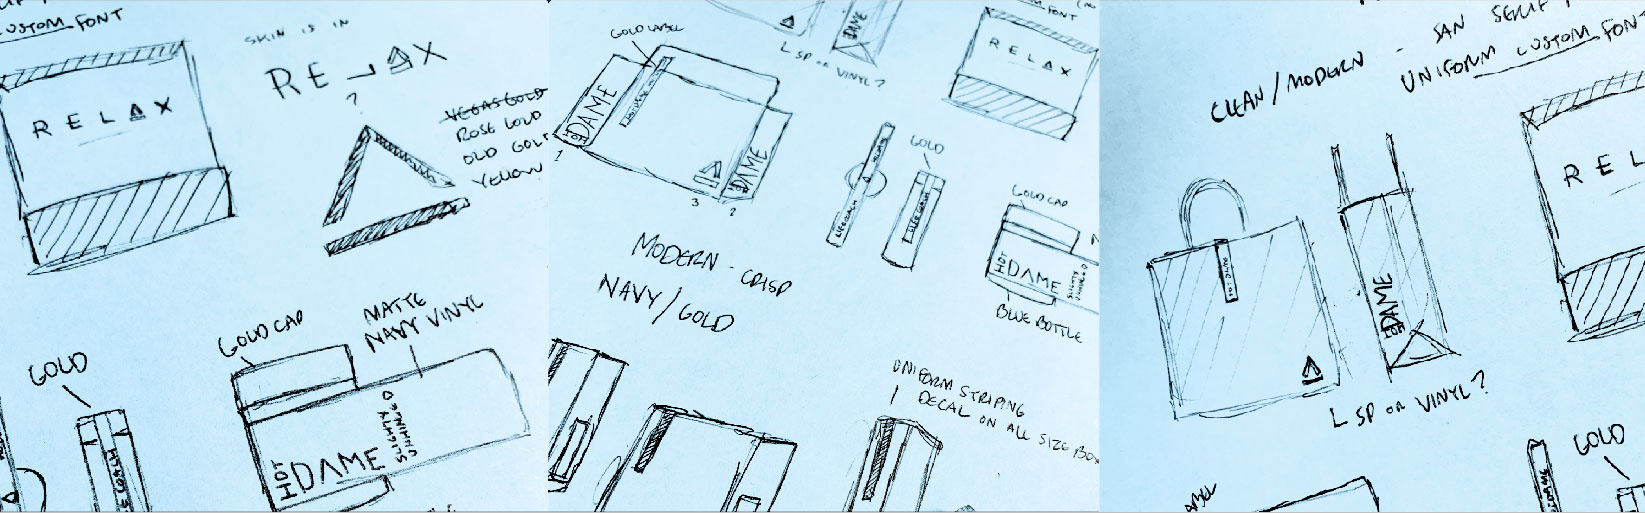 CUSTOM FONT
SKIN IS IN
RELAX
RELAX
?
VEGAS GOLD
ROSE GOLD
OLD GOLD
YELLOW
GOLD
GOLD CAP
MATTE
NAVY VINYL
HOT DAME
SLIGHTLY
UNHINGED
LIFE COACH
GOLD LABEL
HOT DAME
HOT DAME
1
3
2
DAME
L SP OR VINYL?
FONT
RELAX
GOLD
LIFE COACH
LIFE COACH
GOLD CAP
HOT DAME
BLUE BOTTLE
MODERN - CRISP
NAVY/GOLD
UNIFORM STRIPING
DECAL ON ALL SIZE BOX
CLEAN/MODERN - SAN SERIF
UNIFORM CUSTOM FONT
HOT DAME
L SP OR VINYL?
REL
GOLD